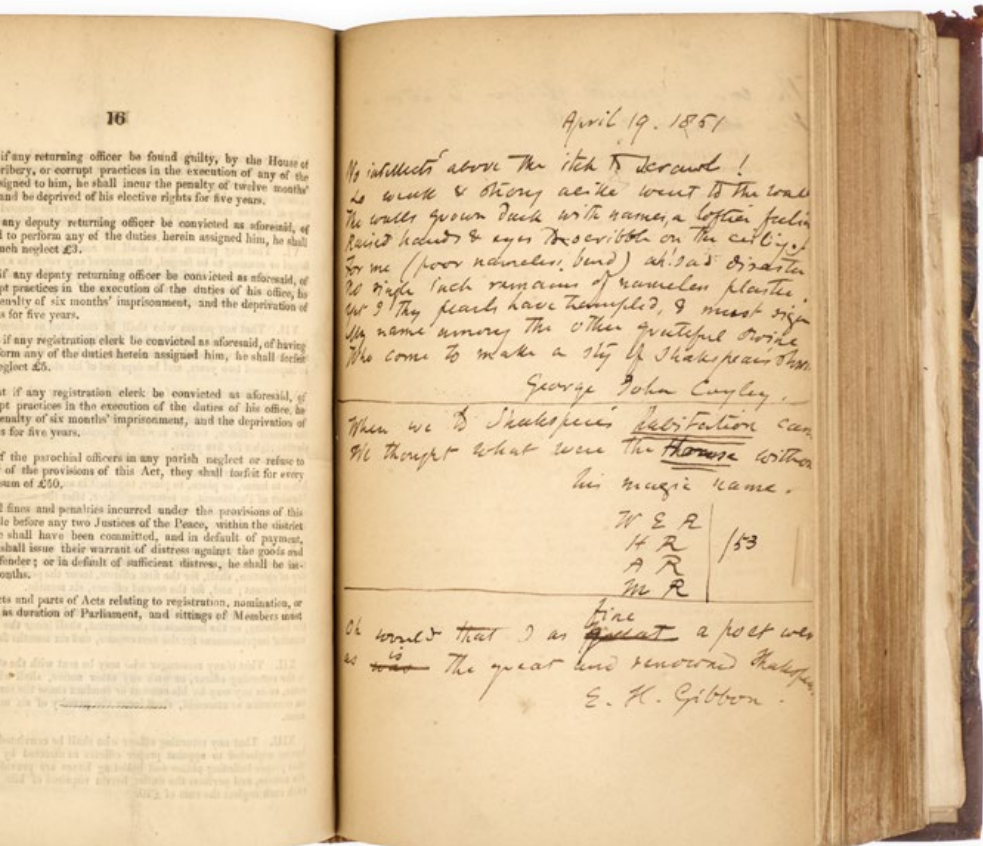 16
if any returning officer be found guilty, by the House of
ribery, or corrupt practices in the execution of any of the
signed to him, he shall incur the penalty of twelve months'
and be deprived of his elective rights for five years.
any deputy returning officer be convicted as aforesaid, of
d to perform any of the duties herein assigned him, he shall
uch neglect £3.
if any deputy returning officer be convicted as aforesaid, of
pt practices in the execution of the duties of his office, he
enalty of six months' imprisonment, and the deprivation of
s for five years.
if any registration clerk be convicted as aforesaid, of having
form any of the duties herein assigned him, he shall forfeit
eglect £5.
t if any registration clerk be convicted as aforesaid, of
pt practices in the execution of the duties of his office, he
enalty of six months' imprisonment, and the deprivation of
s for five years.
f the parochial officers in any parish neglect or refuse to
of the provisions of this Act, they shall forfeit for every
sum of £50.
l fines and penalties incurred under the provisions of this
le before any two Justices of the Peace, within the district
e shall have been committed, and in default of payment,
shall issue their warrant of distress against the goods and
fender; or in default of sufficient distress, he shall be im-
onths.
cts and parts of Acts relating to registration, nomination, or
as duration of Parliament, and sittings of Members must
April 19. 1851
No intellects above the itch to scrawl!
So weak & strong alike went to the wall
The walls grown dark with names, a loftier feelin
Raised hands & eyes to scribble on the ceiling.
For me (poor nameless bard) ah! sad disaster
No single inch remains of nameless plaster
yet I thy pearls have trampled, & must sign
My name among the other grateful swine
Who come to make a sty of Shakspeare's shrin
George John Cayley.
When we to Shakspere's habitation cam
We thought what were the house withou
his magic name.
W E R
H R
A R
M R
/53
Oh would that I as great fine a poet wer
as was is the great and renowned Shakspea
E. H. Gibbon.